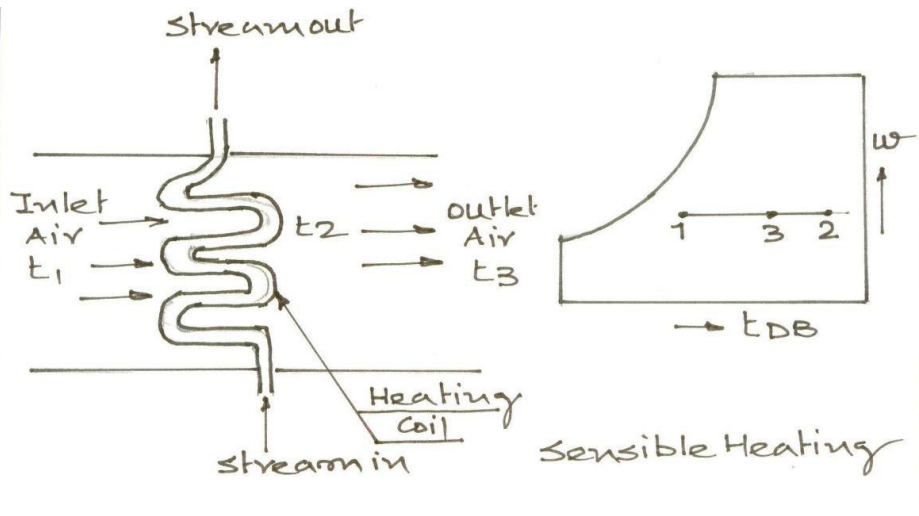 Streamout
Inlet
Air
t1
t2
outlet
Air
t3
Heating
Coil
Streamin
w
1 3 2
tDB
Sensible Heating